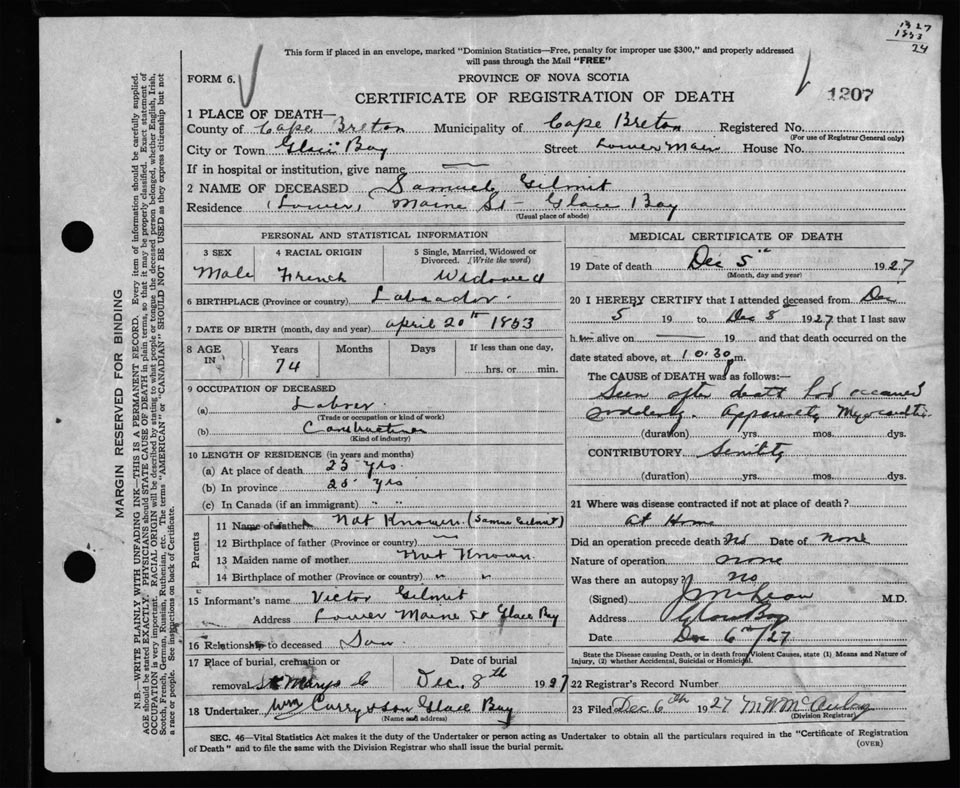 1927
1853
24
This form if placed in an envelope, marked "Dominion Statistics—Free, penalty for improper use $300," and properly addressed
will pass through the Mail "FREE"
FORM 6.
PROVINCE OF NOVA SCOTIA
CERTIFICATE OF REGISTRATION OF DEATH
1207
1 PLACE OF DEATH—
County of Cape Breton Municipality of Cape Breton Registered No.
(For use of Registrar General only)
City or Town Glace Bay Street Lower Main House No.
If in hospital or institution, give name —
2 NAME OF DECEASED Samuel Gilmit
Residence (Lower) Maine St - Glace Bay
(Usual place of abode)
PERSONAL AND STATISTICAL INFORMATION
3 SEX 4 RACIAL ORIGIN 5 Single, Married, Widowed or
Divorced. (Write the word)
Male French Widowed
6 BIRTHPLACE (Province or country) Labrador.
7 DATE OF BIRTH (month, day and year) april 20th 1853
8 AGE IN Years Months Days If less than one day,
74 hrs. or min.
9 OCCUPATION OF DECEASED
(a) Labrer
(Trade or occupation or kind of work)
(b) Construction
(Kind of industry)
10 LENGTH OF RESIDENCE (in years and months)
(a) At place of death 25 yrs
(b) In province 25 yrs
(c) In Canada (if an immigrant) " "
Parents
11 Name of father Not Known (Samuel Gilmit)
12 Birthplace of father (Province or country) —
13 Maiden name of mother Not Known.
14 Birthplace of mother (Province or country) " "
15 Informant's name Victor Gilmit
Address Lower Maine St Glace Bay
16 Relationship to deceased Son
17 Place of burial, cremation or Date of burial
removal St Marys C Dec. 8th 1927
18 Undertaker Wm Curry & son Glace Bay
(Name and address)
MEDICAL CERTIFICATE OF DEATH
19 Date of death Dec 5th 1927
(Month, day and year)
20 I HEREBY CERTIFY that I attended deceased from Dec
5 19 to Dec 5th 1927 that I last saw
h alive on — 19 and that death occurred on the
date stated above, at 10.30 p m.
The CAUSE of DEATH was as follows:—
Seen after death had occurred
suddenly. Apparently Myocarditis
(duration) yrs. mos. dys.
CONTRIBUTORY Senility
(duration) yrs. mos. dys.
21 Where was disease contracted if not at place of death?
At Home
Did an operation precede death? No Date of None
Nature of operation none
Was there an autopsy? No
(Signed) M.D.
Address Glace Bay
Date Dec 6th/27
State the Disease causing Death, or in death from Violent Causes, state (1) Means and Nature of
Injury, (2) whether Accidental, Suicidal or Homicidal.
22 Registrar's Record Number
23 Filed Dec 6th 1927 M W McAulay
(Division Registrar)
SEC. 46—Vital Statistics Act makes it the duty of the Undertaker or person acting as Undertaker to obtain all the particulars required in the "Certificate of Registration
of Death" and to file the same with the Division Registrar who shall issue the burial permit.
(OVER)
MARGIN RESERVED FOR BINDING
N.B.—WRITE PLAINLY WITH UNFADING INK—THIS IS A PERMANENT RECORD. Every item of information should be carefully supplied.
AGE should be stated EXACTLY. PHYSICIANS should STATE CAUSE OF DEATH in plain terms, so that it may be properly classified. Exact statement of
OCCUPATION is very important. RACIAL ORIGIN will be described by stating to what people or tongue the deceased person belonged, whether English, Irish,
Scotch, French, German, Russian, Ruthenian, etc. The terms "AMERICAN" or "CANADIAN" SHOULD NOT BE USED as they express citizenship but not
a race or people. See instructions on back of Certificate.